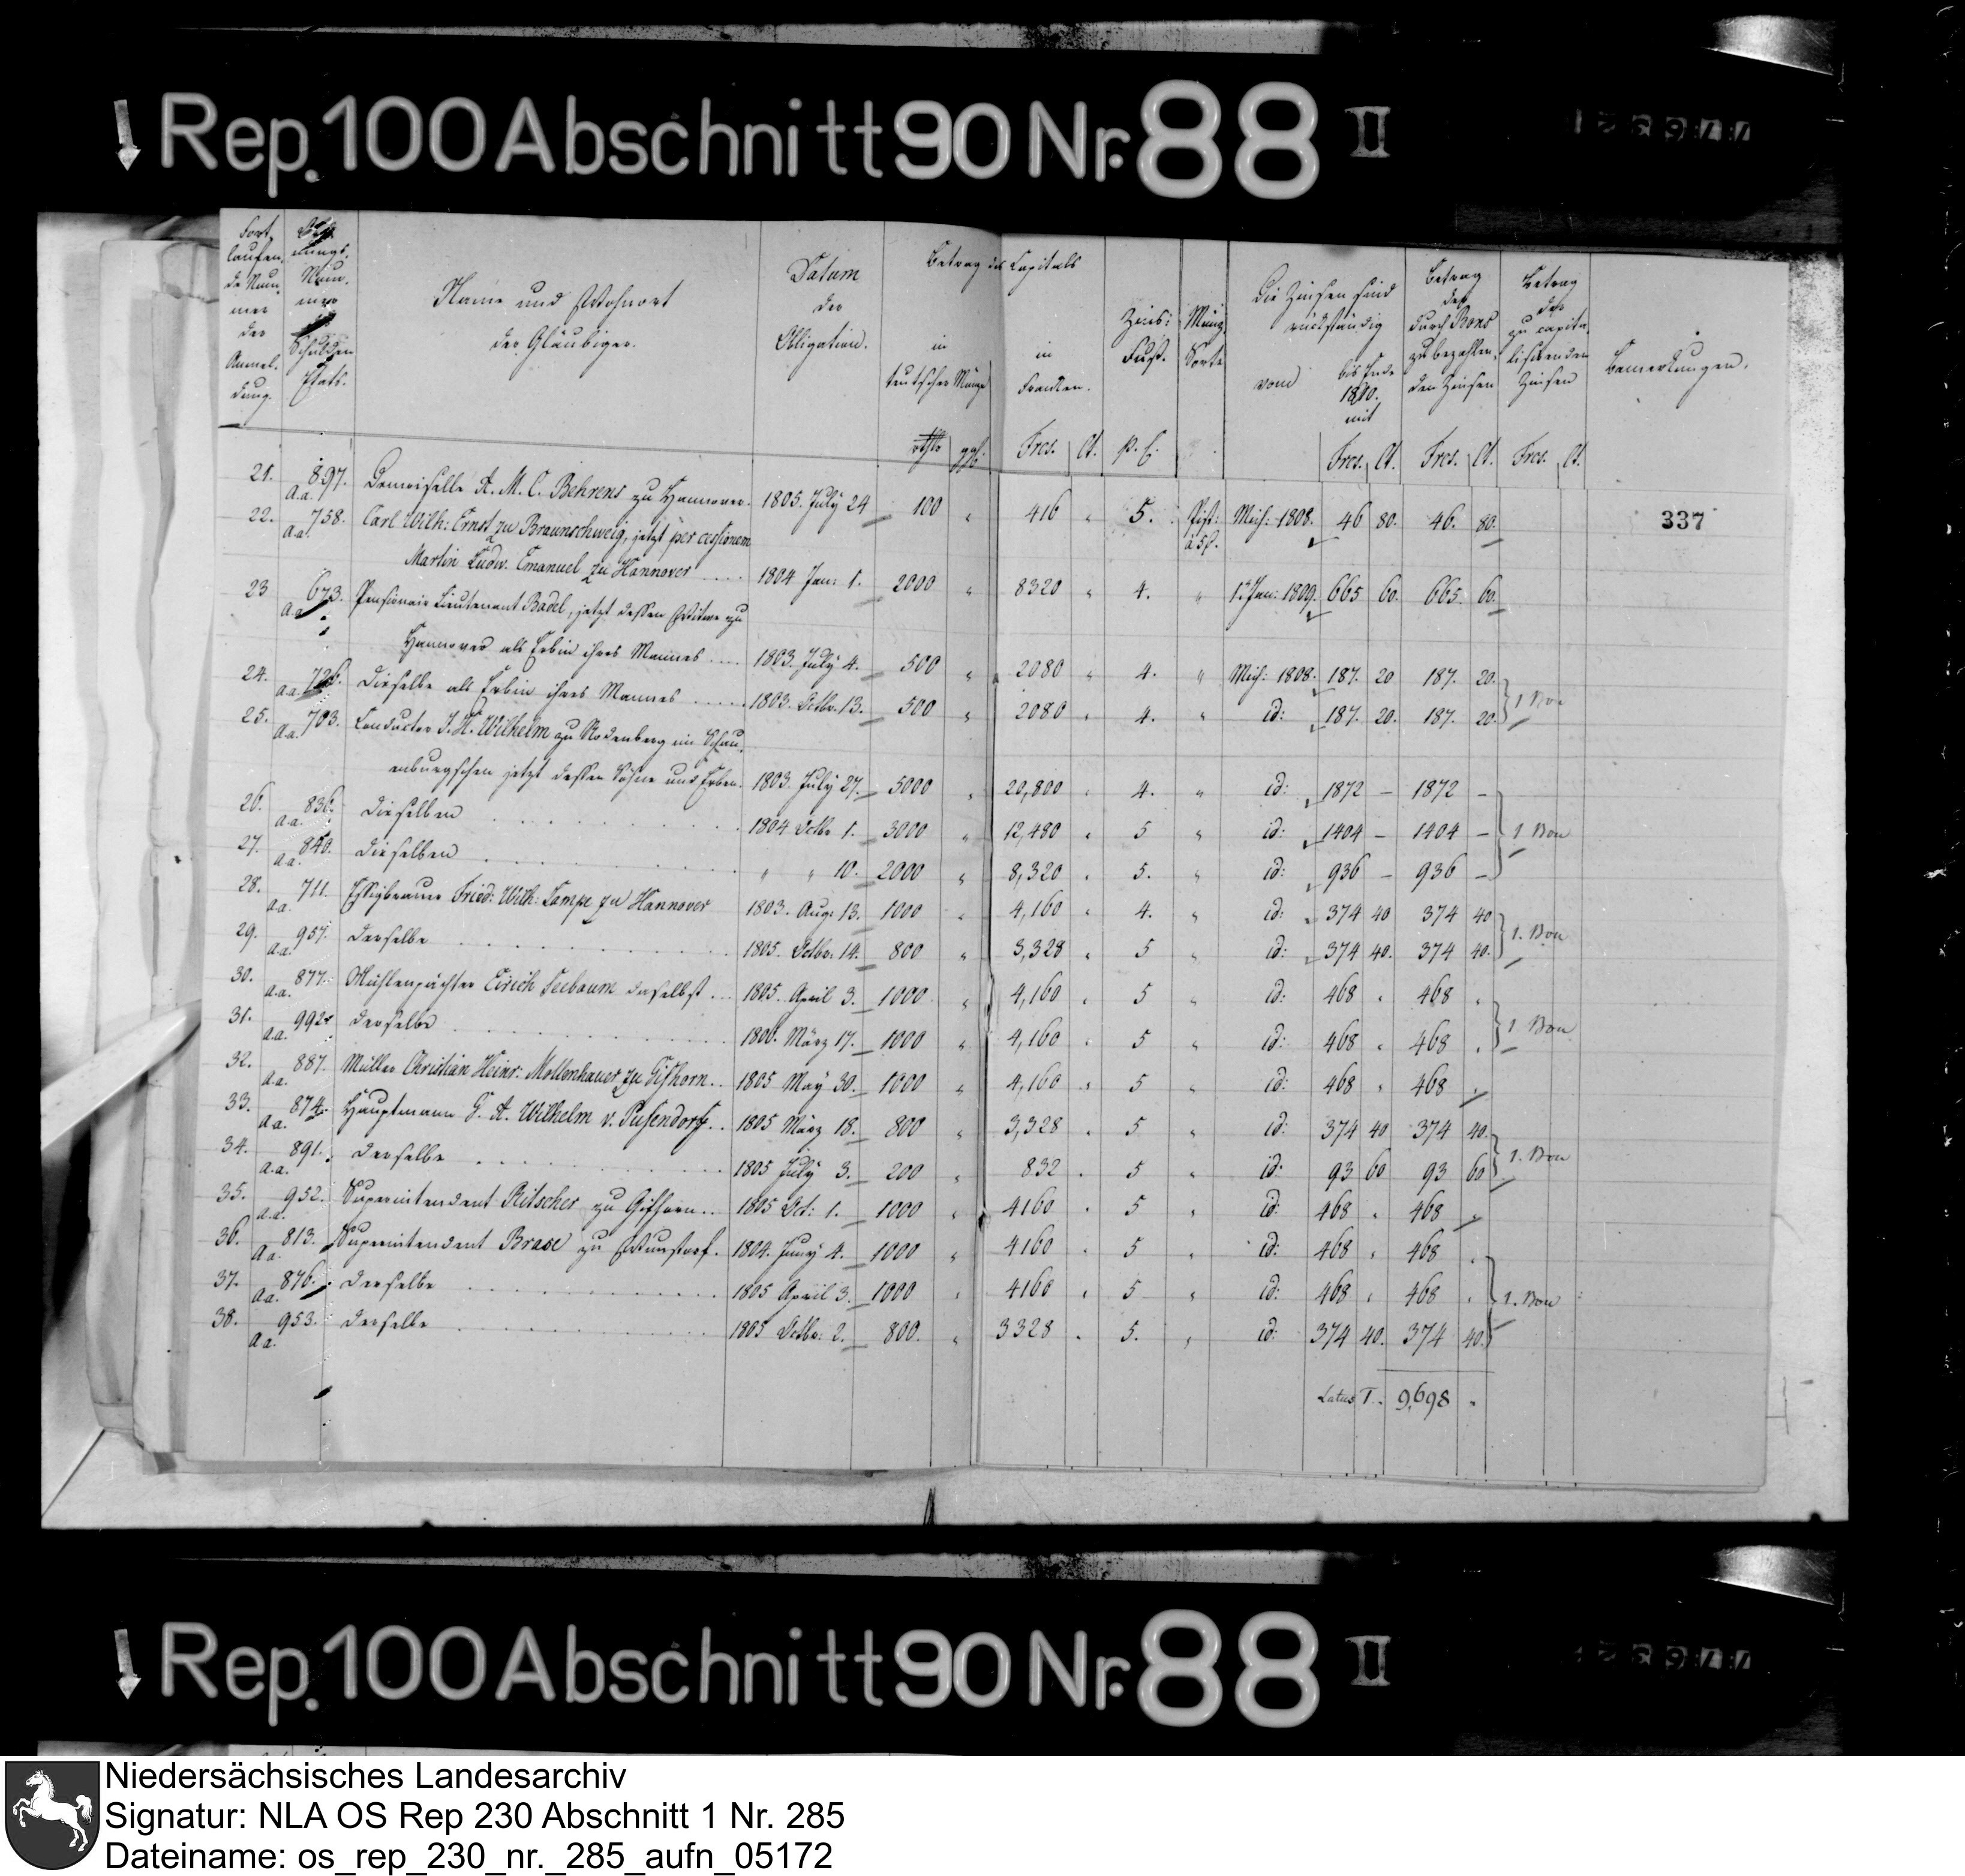 Rep. 100 Abschnitt 90 Nr. 88 II
Fort
laufen
de Num
mer
der
Anmel-
dung.
nungs-
Num-
mer
Schulden
Etats.
Name und Wohnort
der Gläubiger.
Datum
der
Obligation.
Betrag des Capitals
in
teutscher Münze
in
Franken.
Zins:
Fuß.
Münz
Sorte
Die Zinsen sind
rückständig
vom
bis Ende
1810.
mit
Betrag
der
durch Bons
zu bezahlen-
den Zinsen
Betrag
der
zu capita-
lisirenden
Zinsen
Bemerkungen.
rthlr ggl. Frcs. Ct. p. C. Frcs. Ct. Frcs. Ct. Frcs. Ct.
337
21. a.a. 897. Demoiselle A. M. C. Behrens zu Hannover. 1805. July 24 100 „ 416 „ 5. Pist: à 5 f. Mich: 1808. 46 80. 46. 80.
22. a.a. 758. Carl Wilh: Ernst zu Braunschweig, jetzt per cessionem
Martin Ludw. Emanuel zu Hannover .... 1804 Jan: 1. 2000 „ 8320 „ 4. „ 1t Jan: 1809. 665 60. 665. 60.
23 a.a. 673. Pensionair Lieutenant Badel, jetzt dessen Witwe zu
Hannover als Erbin ihres Mannes .... 1803. July 4. 500 „ 2080 „ 4. „ Mich: 1808. 187. 20 187. 20.
24. a.a. 726. Dieselbe als Erbin ihres Mannes ..... 1803. Octbr. 13. 500 „ 2080 „ 4. „ id: 187. 20. 187. 20. } 1 Bon
25. a.a. 703. Conductor J. H. Wilhelm zu Rodenberg im Schau-
enburgschen jetzt dessen Söhne und Erben. 1803. July 27. 5000 „ 20,800 „ 4. „ id: 1872 – 1872 –
26. a.a. 836. Dieselben ..... 1804 Octbr 1. 3000 „ 12,480 „ 5 „ id: 1404 – 1404 – } 1 Bon
27. a.a. 840. Dieselben ..... „ „ 10. 2000 „ 8,320 „ 5. „ id: 936 – 936 –
28. a.a. 711. Essigbrauer Fried: Wilh: Lampe zu Hannover 1803. Aug: 13. 1000 „ 4,160 „ 4. „ id: 374 40 374 40
29. a.a. 957. Derselbe ..... 1805. Octbr. 14. 800 „ 3,328 „ 5 „ id: 374 40. 374 40. } 1. Bon
30. a.a. 877. Mühlenpächter Eirich Seebaum daselbst ... 1805. April 3. 1000 „ 4,160 „ 5 „ id: 468 „ 468 „
31. a.a. 992. Derselbe ..... 1806. März 17. 1000 „ 4,160 „ 5 „ id: 468 „ 468 „ } 1 Bon
32. a.a. 887. Müller Christian Heinr: Mollenhauer zu Gifhorn.. 1805 May 30. 1000 „ 4,160 „ 5 „ id: 468 „ 468 „
33. a.a. 874. Hauptmann G. A. Wilhelm v. Pufendorf... 1805 März 18. 800 „ 3,328 „ 5 „ id: 374 40 374 40.
34. a.a. 891. Derselbe ..... 1805 July 3. 200 „ 832 „ 5 „ id: 93 60 93 60 } 1. Bon
35. a.a. 952. Superintendent Ritscher zu Gifhorn... 1805 Oct: 1. 1000 „ 4160 „ 5 „ id: 468 „ 468 „
36. a.a. 813. Superintendent Brase zu Wunstorf. 1804. Juny 4. 1000 „ 4160 „ 5 „ id: 468 „ 468 „
37. a.a. 876. Derselbe ..... 1805 April 3. 1000 „ 4160 „ 5 „ id: 468 „ 468 „ } 1. Bon
38. a.a. 953. Derselbe ..... 1805 Octbr: 2. 800. „ 3328 „ 5. „ id: 374 40. 374 40.
Latus T. 9,698 „
Rep. 100 Abschnitt 90 Nr. 88 II
Niedersächsisches Landesarchiv
Signatur: NLA OS Rep 230 Abschnitt 1 Nr. 285
Dateiname: os_rep_230_nr._285_aufn_05172